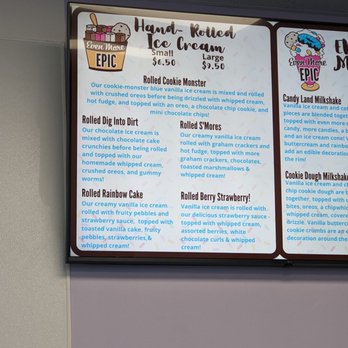 Even More
EPIC
Hand-Rolled
Ice Cream
Small Large
$6.50 $7.50
Rolled Cookie Monster
Our cookie-monster blue vanilla ice cream is mixed and rolled
with crushed oreos before being drizzled with whipped cream,
hot fudge, and topped with an oreo, a chocolate chip cookie, and
mini chocolate chips!
Rolled Dig Into Dirt
Our chocolate ice cream is
mixed with chocolate cake
crunchies before being rolled
and topped with our
homemade whipped cream,
crushed oreos, and gummy
worms!
Rolled S'Mores
Our creamy vanilla ice cream
rolled with graham crackers and
hot fudge, topped with more
graham crackers, chocolates,
toasted marshmallows &
whipped cream!
Rolled Rainbow Cake
Our creamy vanilla ice cream
rolled with fruity pebbles and
strawberry sauce, topped with
toasted vanilla cake, fruity
pebbles, strawberries, &
whipped cream!
Rolled Berry Strawberry!
Vanilla ice cream is rolled with
our delicious strawberry sauce -
topped with whipped cream,
assorted berries, white
chocolate curls & whipped
cream!
Even More
EPIC
Candy Land Milkshake
Vanilla ice cream and
pieces are blended together
topped with even more
candy, more candies, a
and an ice cream cone!
buttercream and rainbow
add an edible decoration
the rim!
Cookie Dough Milkshake
Vanilla ice cream and
chip cookie dough are
together, topped with
bites, oreos, a chipwich
whipped cream, cover
drizzle. Vanilla butter
cookie crumbs are an e
decoration around the